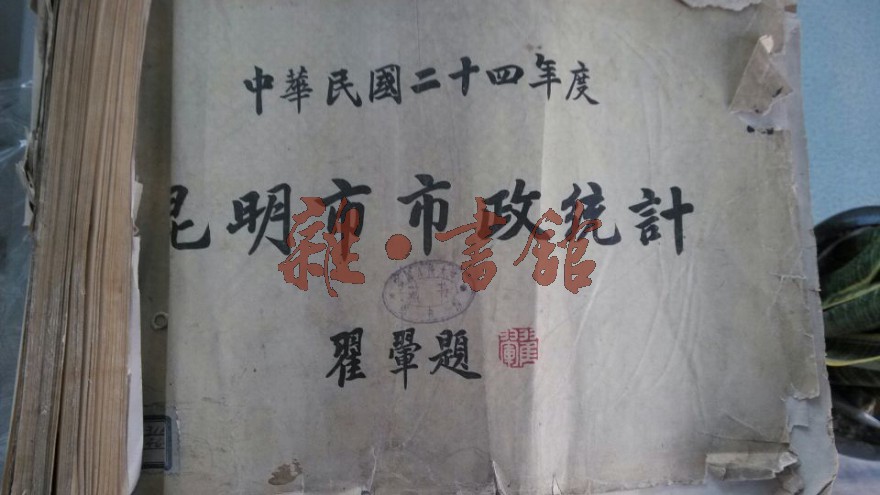 中華民國二十四年度
昆明市市政統計
雜·書館
翟翬題